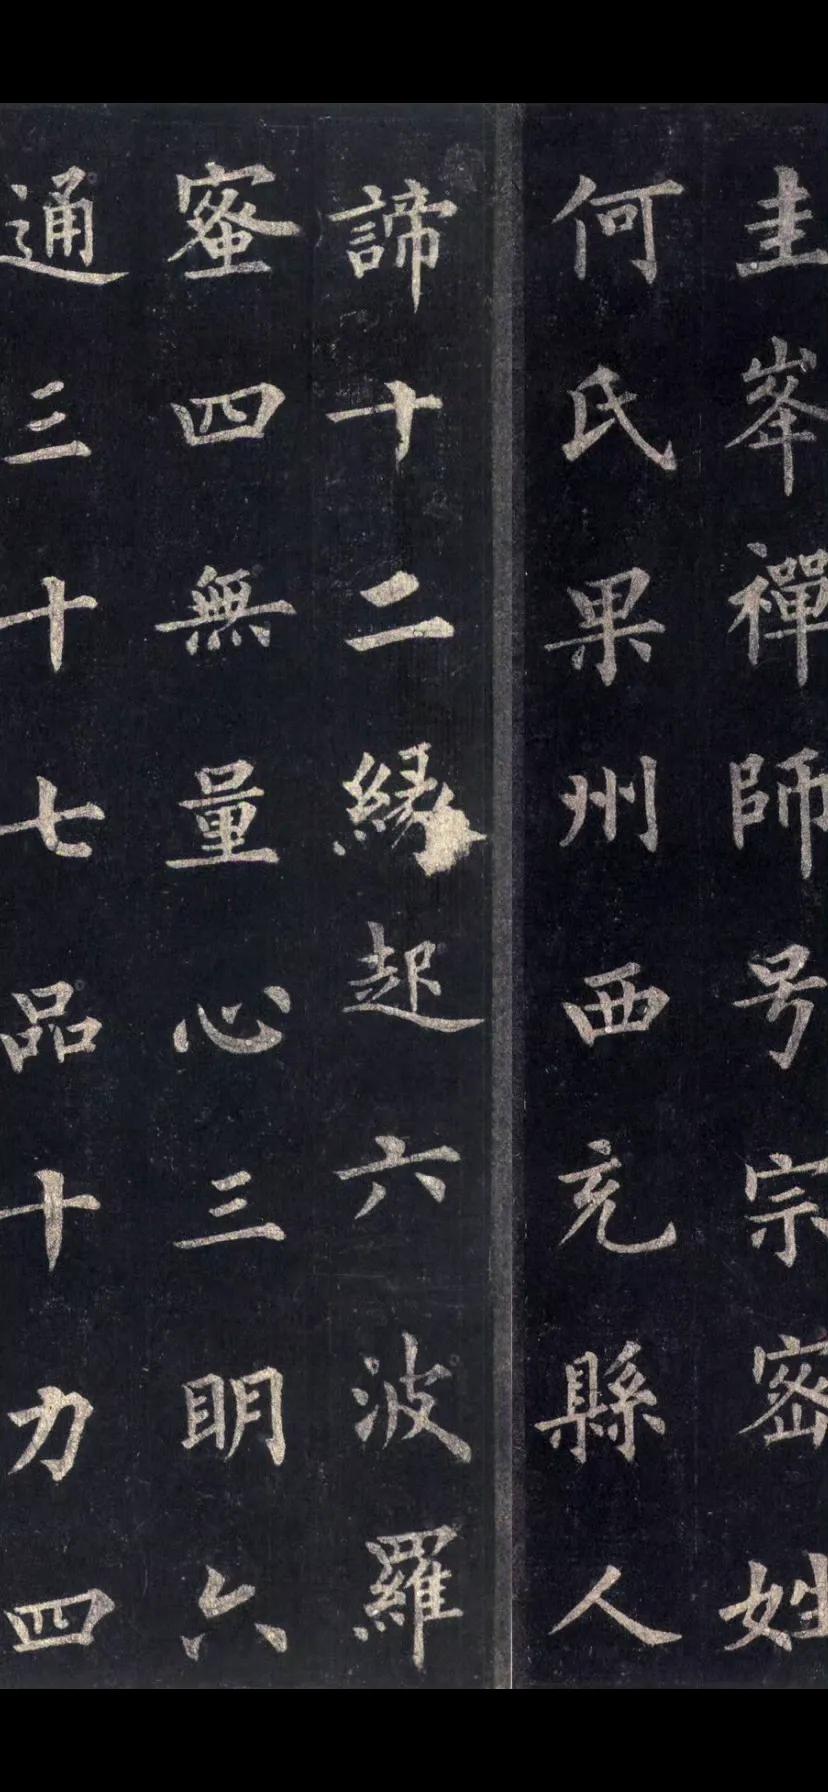 圭峯禪師号宗密姓
何氏果州西充縣人
諦十二緣起六波羅
蜜四無量心三明六
通三十七品十力四